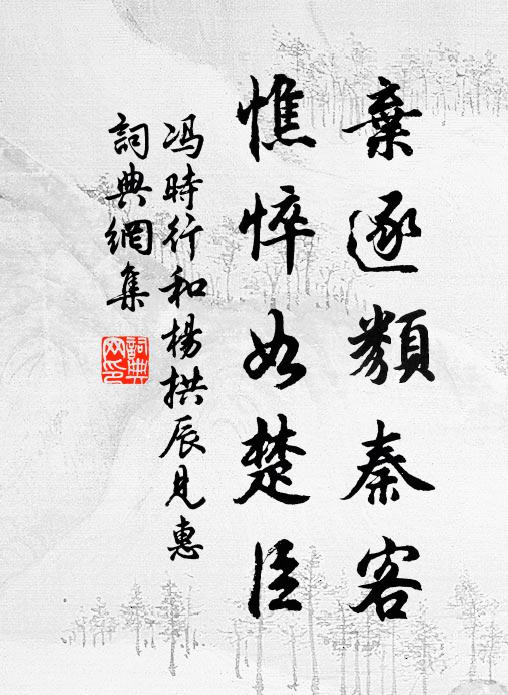 棄逐類秦客
憔悴如楚臣
冯時行和楊拱辰見惠
詞典網集
詞典网印